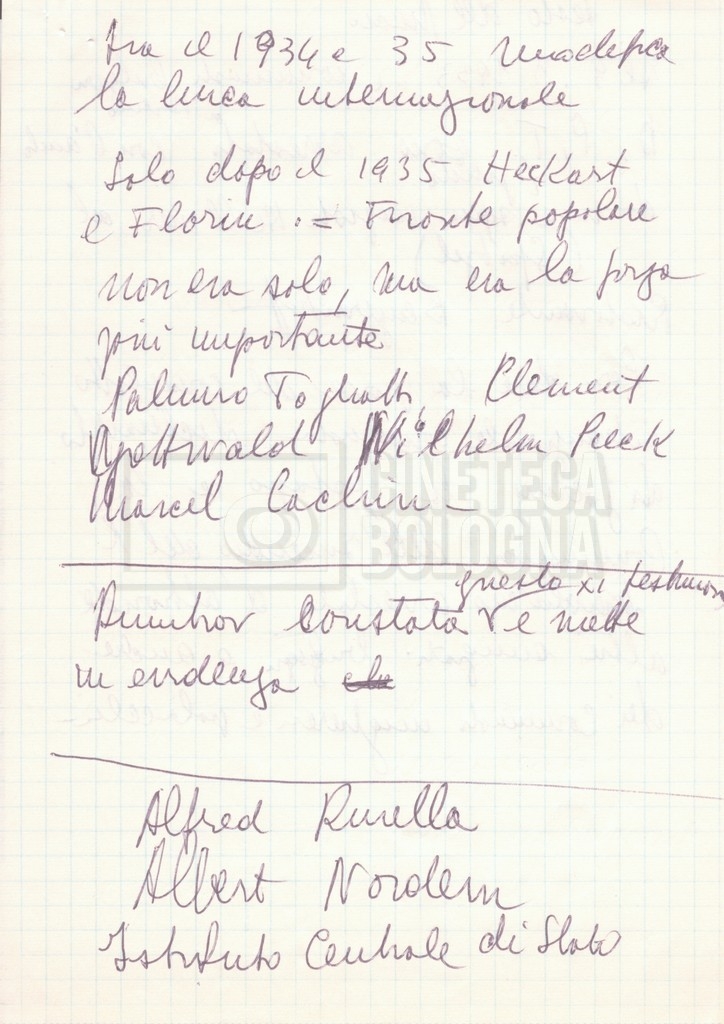 Tra il 1934 e 35 modifica
la linea internazionale
Solo dopo il 1935 Heckart
e Florin . = Fronte popolare
non era solo, ma era la forza
più importante
Palmiro Togliatti Clement
Gottwald Wilhelm Pieck
Marcel Cachin –
CINETECA
BOLOGNA
questa xi testimon
Dimitrov constata V e mette
in evidenza
Alfred Kurella
Albert Norden
Istituto Centrale di Stato